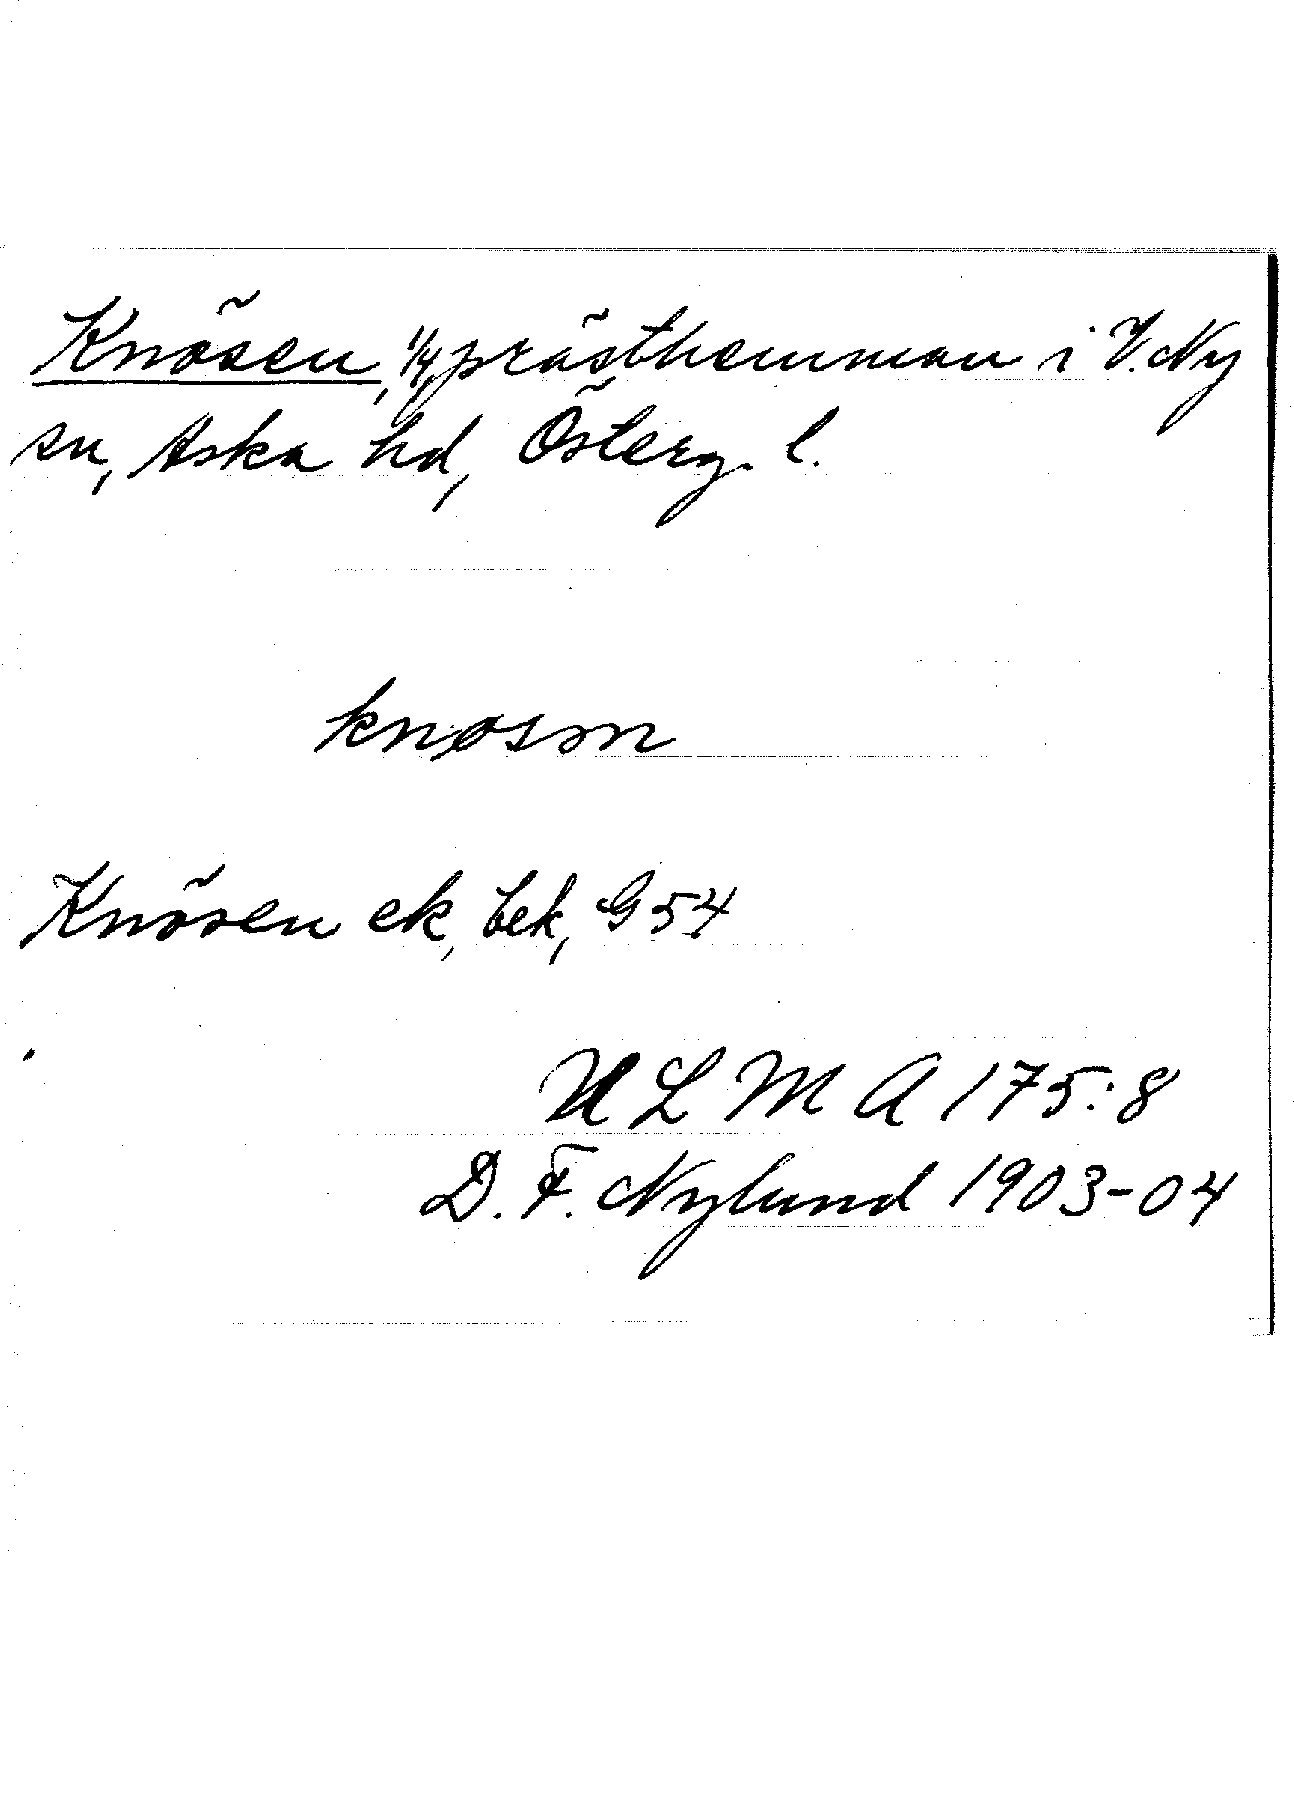 Knösen, 1/4 prästhemman i V. Ny
sn, Aska hd, Österg. l.
knøsən
Knösen ek, bek, G 54
U L M A 175:8
D. F. Nylund 1903-04